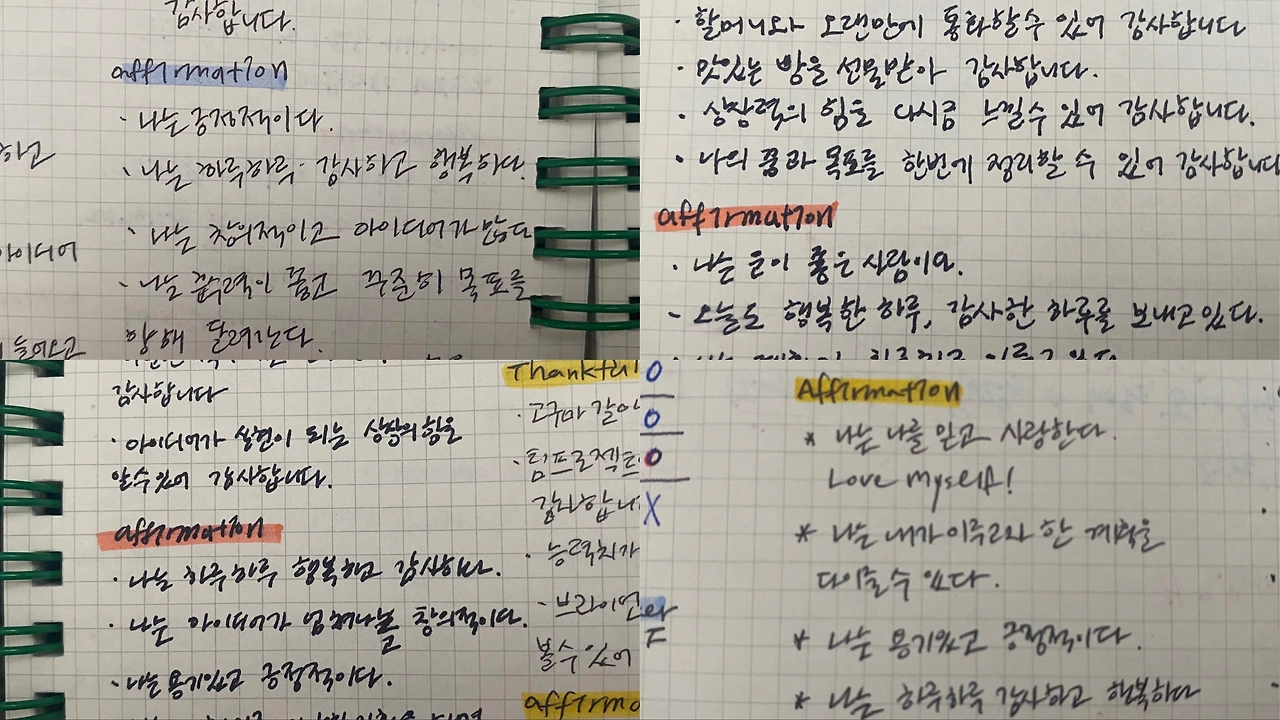 감사합니다.
affirmation
· 나는 긍정적이다.
· 나는 하루하루 감사하고 행복하다.
· 나는 창의적이고 아이디어가 많다
· 나는 끌어당김이 좋고 꾸준히 목표를
향해 달려간다.
하고
아이디어
들어오고
· 할머니와 오랜만에 통화할수 있어 감사합니다
· 맛있는 빵을 선물받아 감사합니다.
· 상상력의 힘을 다시금 느낄수 있어 감사합니다.
· 나의 꿈과 목표를 한번에 정리할 수 있어 감사합니다
affirmation
· 나는 운이 좋은 사람이다.
- 오늘도 행복한 하루, 감사한 하루를 보내고 있다.
감사합니다
· 아이디어가 실현이 되는 상상의 힘을
알수있어 감사합니다.
affirmation
· 나는 하루하루 행복하고 감사하다.
· 나는 아이디어가 넘쳐나고 창의적이다.
· 나는 용기있고 긍정적이다.
Thankful
· 고구마 같이
· 팀프로젝트
감사합니
· 능력치가
· 브라이언
볼수있어
affirmo
O
O
O
X
와
Affirmation
* 나는 나를 믿고 사랑한다.
Love Myself!
* 나는 내가 이루고자 한 계획을
다이룰수 있다.
* 나는 용기있고 긍정적이다.
* 나는 하루하루 감사하고 행복하다